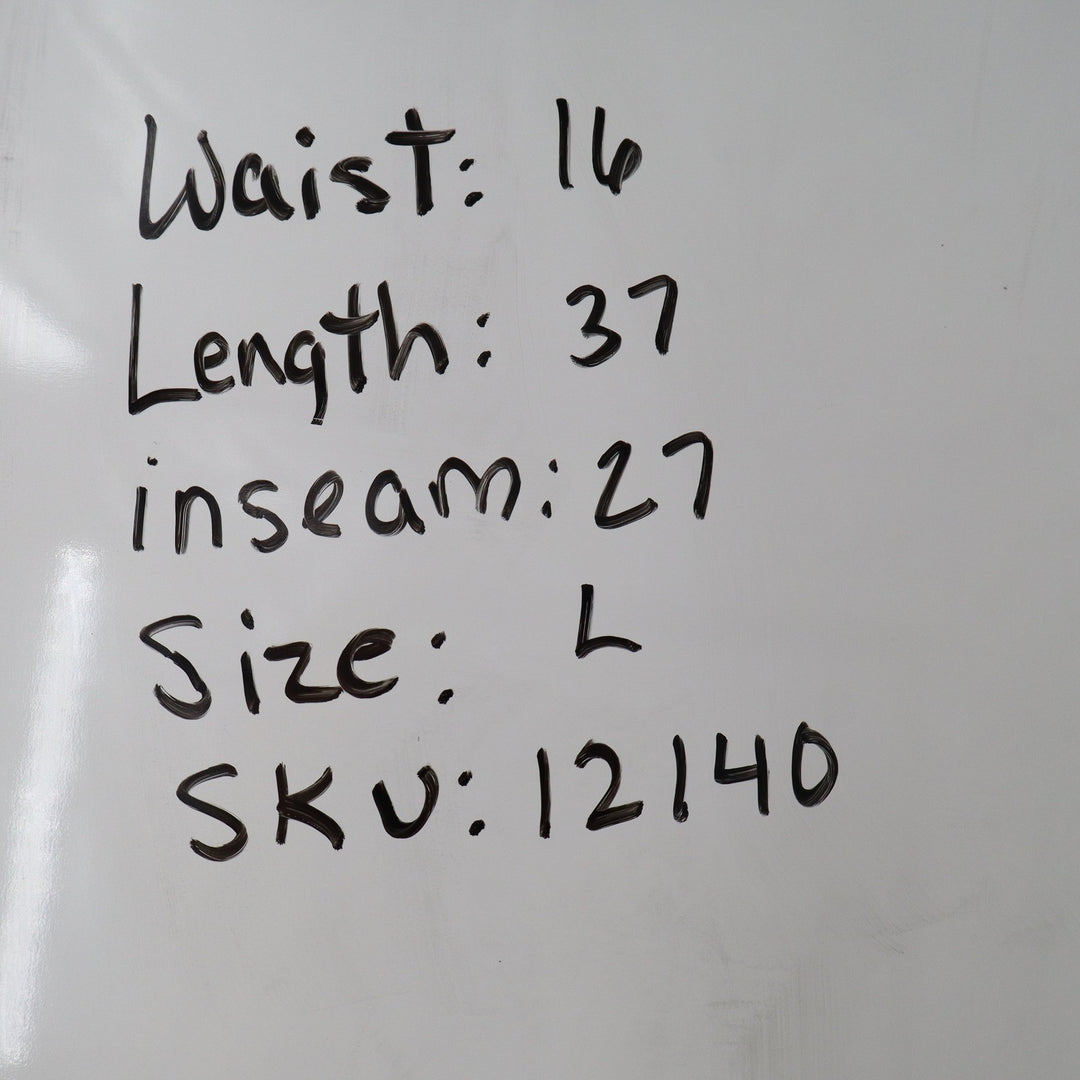 Waist: 16
Length: 37
inseam: 27
Size: L
SKU: 12140